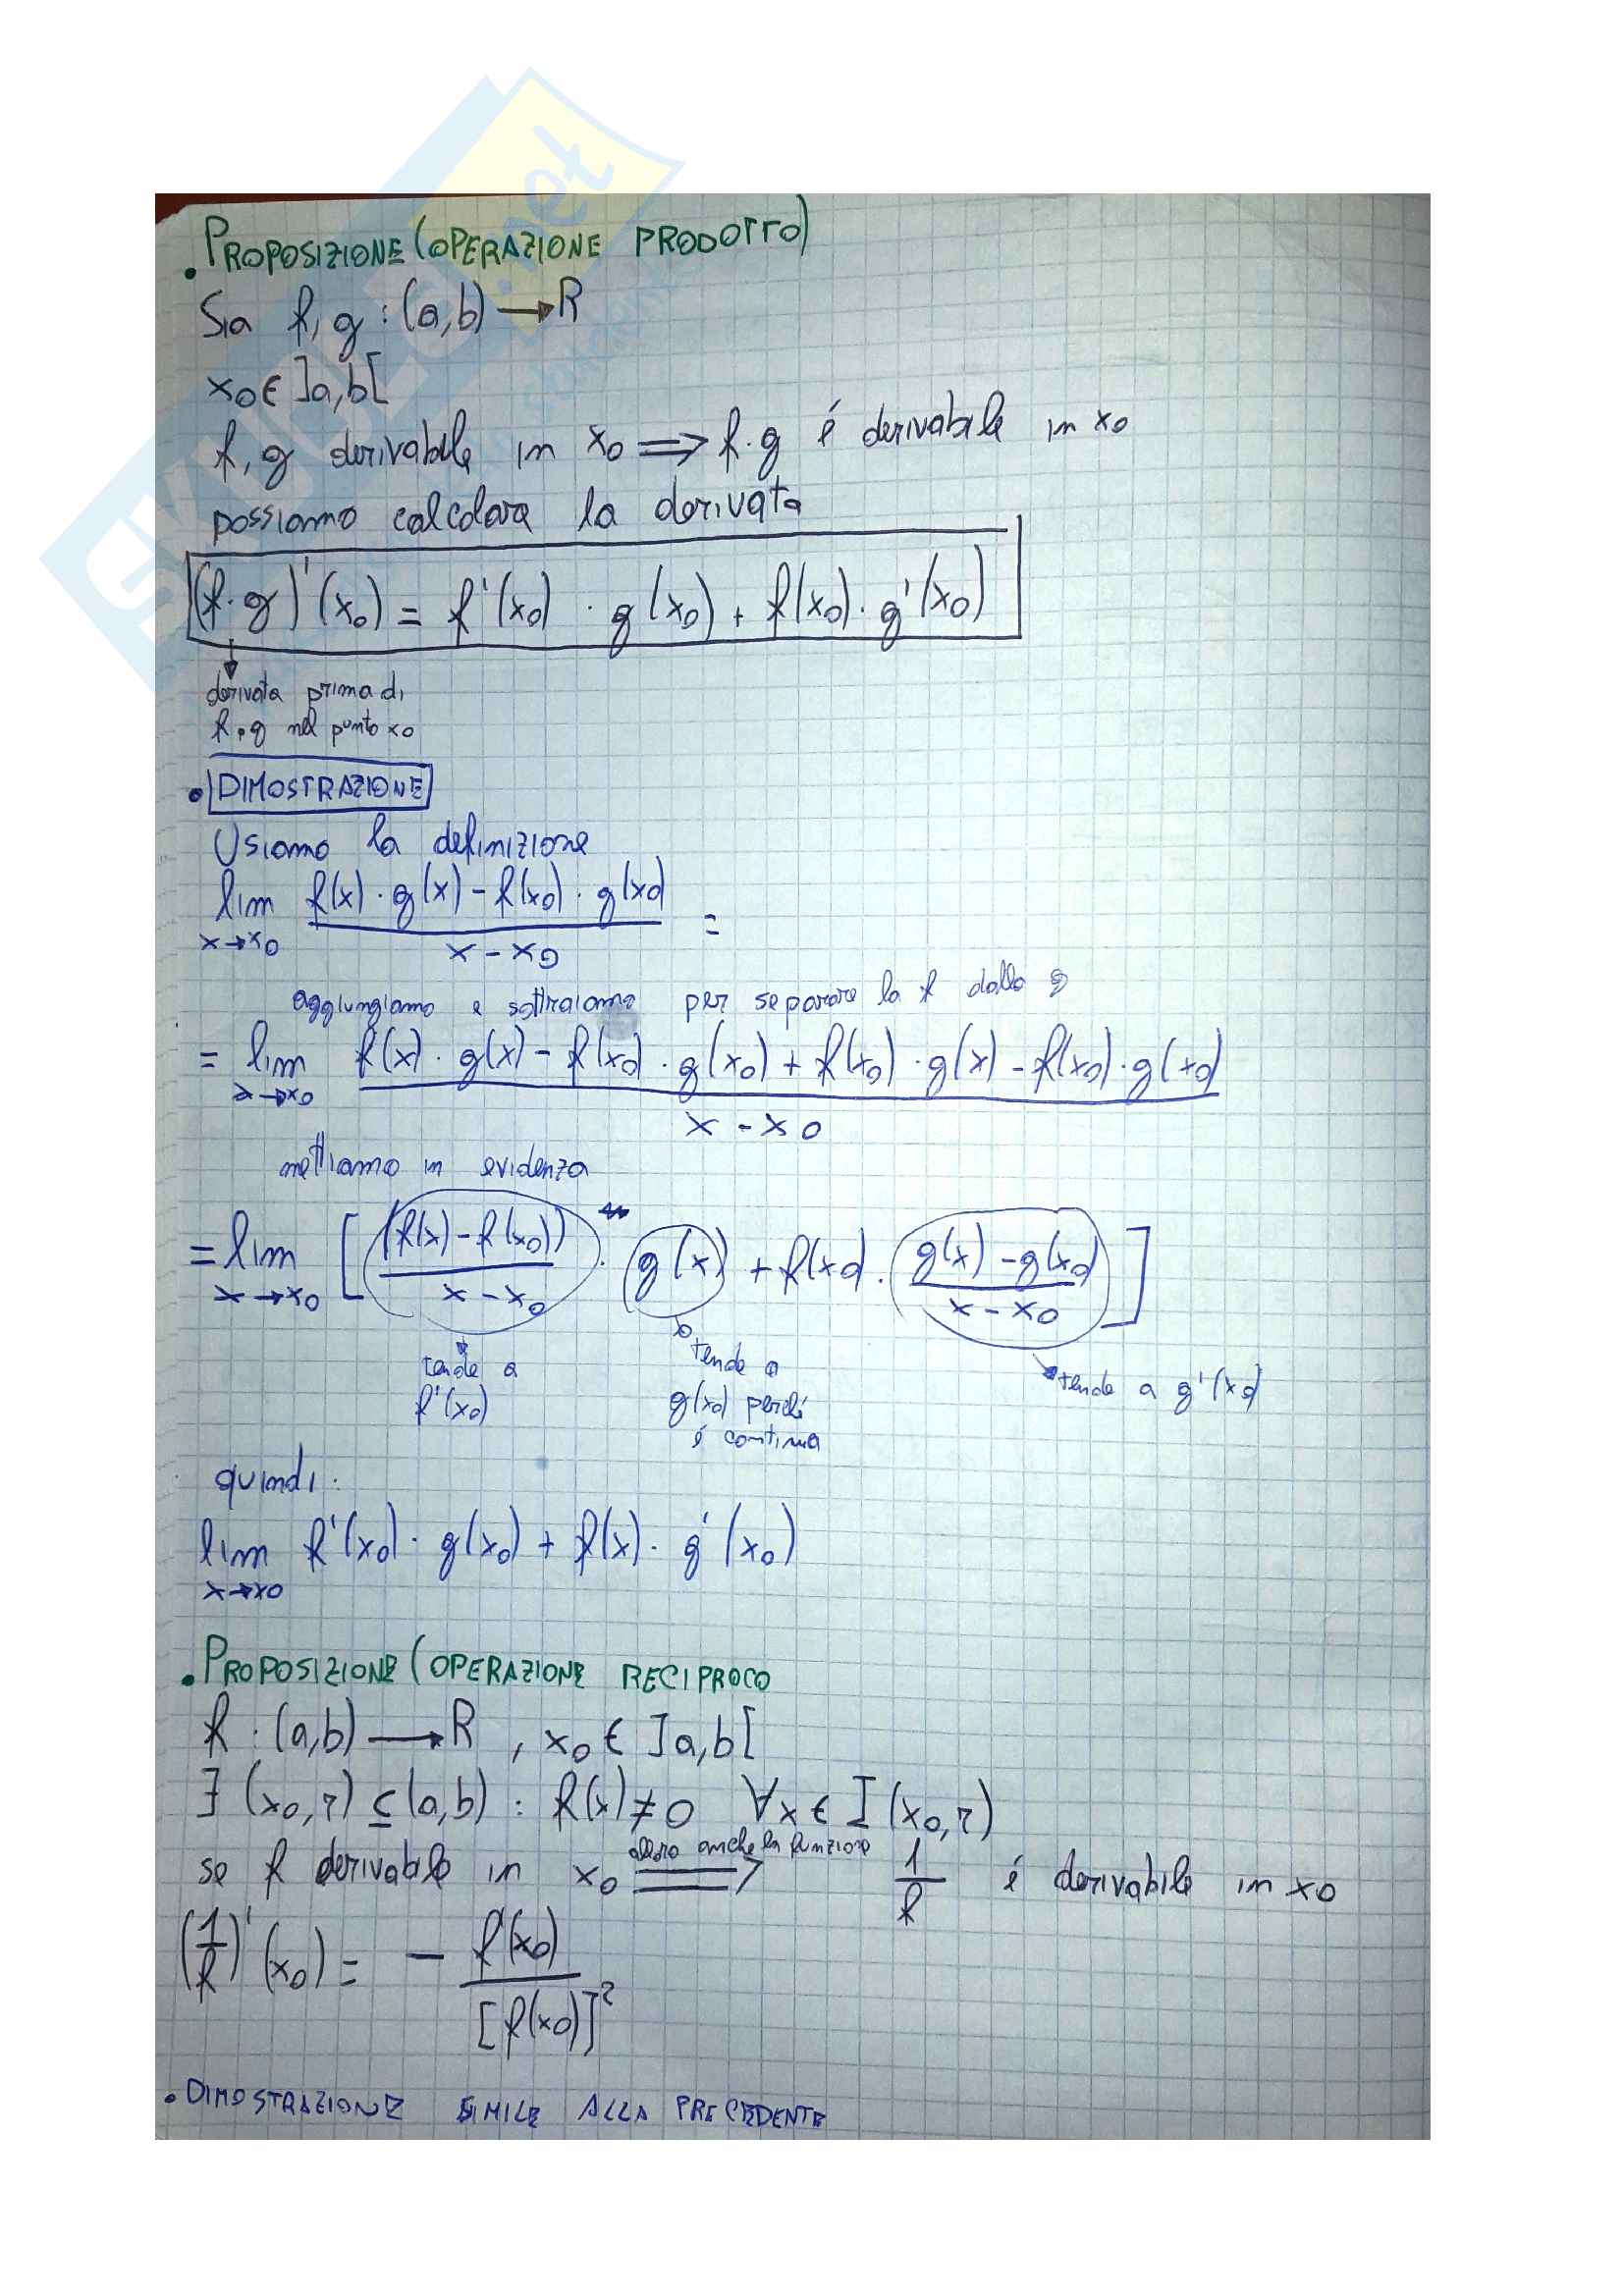 . PROPOSIZIONE (OPERAZIONE PRODOTTO)
Sia f, g : (a,b) → R
x0 ∈ ]a,b[
f, g derivabile in x0 ⟹ f · g é derivabile in x0
possiamo calcolare la derivata
(f · g)'(x0) = f'(x0) · g(x0) + f(x0) · g'(x0)
derivata prima di
f · g nel punto x0
• DIMOSTRAZIONE
Usiamo la definizione
lim x→x0 f(x) · g(x) - f(x0) · g(x0) / x - x0 =
aggiungiamo e sottraiamo per separare la f dalla g
= lim x→x0 f(x) · g(x) - f(x0) · g(x0) + f(x0) · g(x) - f(x0) · g(x0) / x - x0
mettiamo in evidenza
= lim x→x0 [ (f(x) - f(x0)) / x - x0 · g(x) + f(x0) · g(x) - g(x0) / x - x0 ]
tende a
f'(x0)
tende a
g(x0) perché
é continua
tende a g'(x0)
quindi:
lim x→x0 f'(x0) · g(x0) + f(x) · g'(x0)
. PROPOSIZIONE (OPERAZIONE RECIPROCO
f : (a,b) → R , x0 ∈ ]a,b[
∃ (x0, r) ⊆ (a,b) : f(x) ≠ 0 ∀x ∈ I (x0, r)
allora anche la funzione
se f derivabile in x0 ⟹ 1/f é derivabile in x0
(1/f)'(x0) = - f'(x0) / [f(x0)]²
. DIMOSTRAZIONE SIMILE ALLA PRECEDENTE